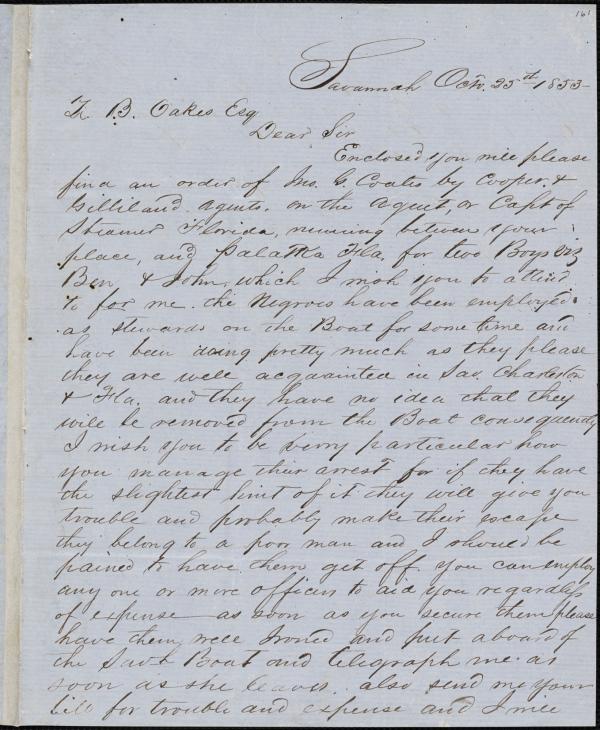 161
Savannah Octr. 25th 1853
Z. B. Oakes Esq
Dear Sir
Enclosed you will please
find an order of Jno. G. Coates by Cooper &
Gilliland agents. on the agent, or Capt of
Steamer Florida, running between your
place, and Palatka Fla. for two Boys viz
Ben & John, which I wish you to attend
to for me. the Negroes have been employed
as stewards on the Boat for some time and
have been doing pretty much as they please
they are well acquainted in Sav. Charleston
& Fla. and they have no idea that they
will be removed from the Boat consequently
I wish you to be very particular how
you manage their arrest for if they have
the slightest hint of it they will give you
trouble and probably make their escape
they belong to a poor man and I should be
pained to have them get off. you can employ
any one or more officers to aid you regardless
of expense as soon as you secure them please
have them well Ironed and put aboard of
the Savh Boat and telegraph me as
soon as she leaves. also send me your
bill for trouble and expense and I will